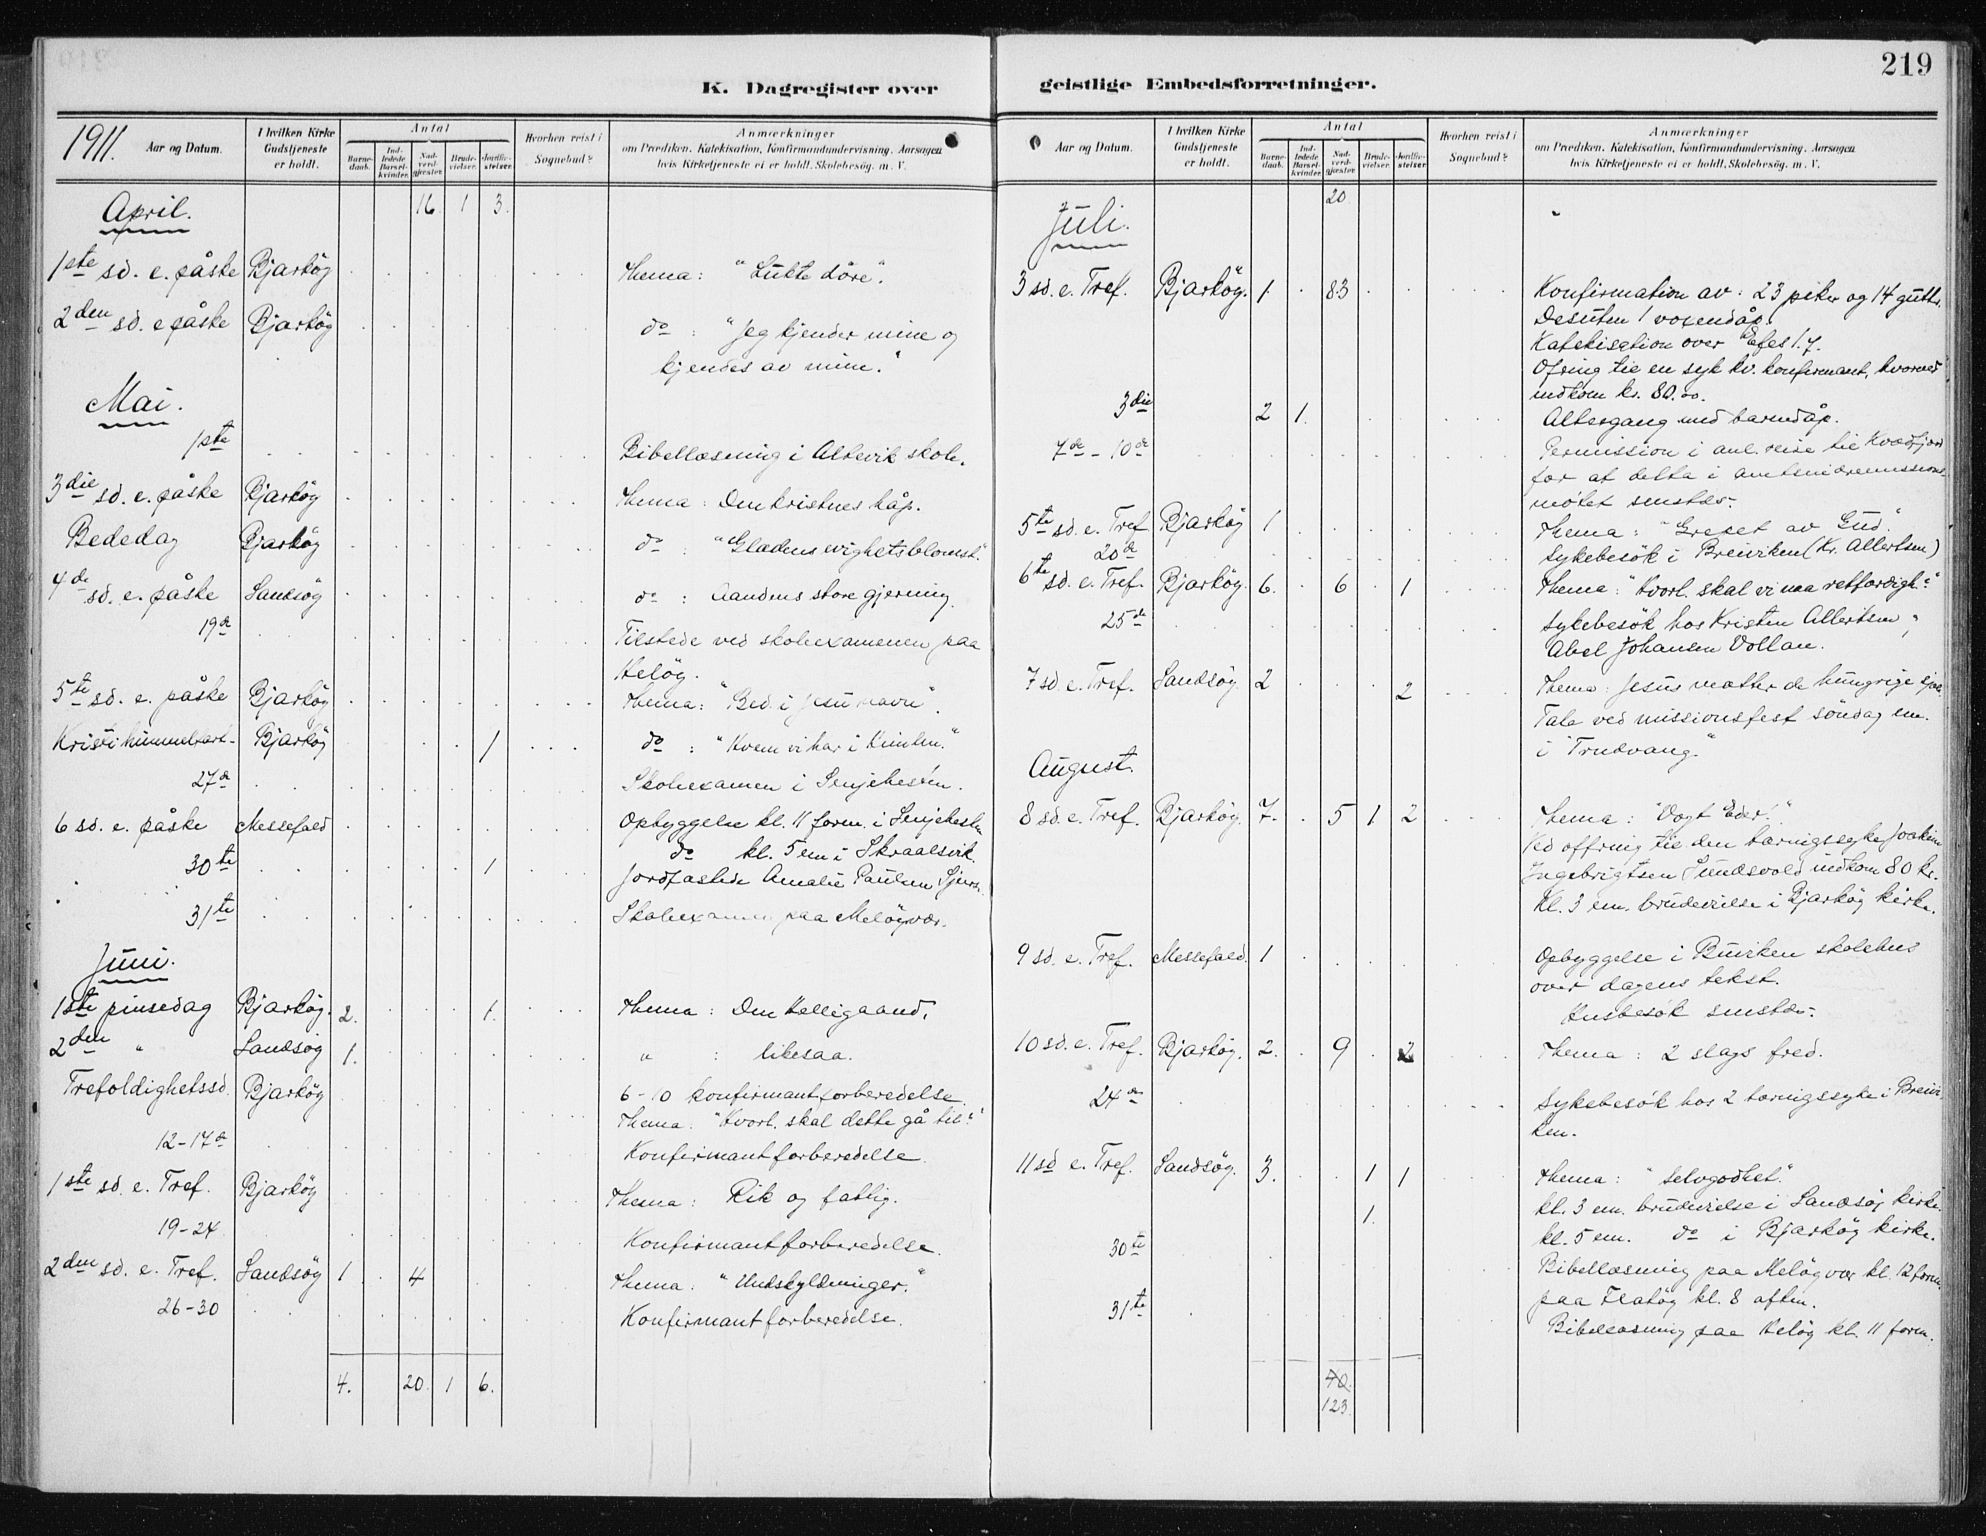 219
K. Dagregister over geistlige Embedsforretninger.
1911. Aar og Datum. I hvilken Kirke Gudstjeneste er holdt. Antal Barnedaab. Indledede Barselkvinder. Nadverdgjæster. Brudevielser. Jordfæstelser. Hvorhen reist i Sognebud? Anmærkninger om Prædiken, Katekisation, Konfirmandundervisning, Aarsagen hvis Kirketjeneste ei er holdt, Skolebesøg, m. V.
April. 16. 1 3.
1ste sd. e. påske Bjarköy Thema: "Lukte döre".
2den sd. e påske Bjarköy do : "Jeg kjender mine og
kjendes av mine."
Mai.
1ste Bibellæsning i Altevik skole.
3die sd. e. påske Bjarköy Thema: Den kristnes håp.
Bededag Bjarköy do : "Glædens evighetsblomst."
4de sd. e. påske Sandsöy do : Aandens store gjerning.
19de Tilstede ved skoleexamenen paa
Helöy.
5te sd. e. påske Bjarköy Thema: "Bed i Jesu navn".
Kristi himmelfart. Bjarköy 1 do : "Hvem vi har i himlen."
27de Skoleexamen i Senjehesten.
6 sd. e. påske Messefald Opbyggelse kl. 11 form. i Senjehesten
do kl. 5 em i Skraalsvik.
30te 1 Jordfæstede Amalie Paulsen
31te Skoleexamen paa Meløyvær.
Juni.
1ste pinsedag Bjarköy. 2. 1. Thema: Den Helligaand.
2den " Sandsöy 1. " : likesaa.
Trefoldighetssd. Bjarköy 6-10 konfirmantforberedelse.
Thema: "Hvorl. skal dette gå til?"
12-17de Konfirmantforberedelse.
1ste sd. e. Tref. Bjarköy Thema: Rik og fattig.
19-24 Konfirmantforberedelse.
2den sd. e. Tref. Sandsöy 1 4 Thema: "Undskyldninger."
26-30 Konfirmantforberedelse.
4. 20. 1 6.
Aar og Datum. I hvilken Kirke Gudstjeneste er holdt. Antal Barnedaab. Indledede Barselkvinder. Nadverdgjæster. Brudevielser. Jordfæstelser. Hvorhen reist i Sognebud? Anmærkninger om Prædiken, Katekisation, Konfirmandundervisning, Aarsagen hvis Kirketjeneste ei er holdt, Skolebesög, m. V.
Juli. 20
3 sd. e. Tref. Bjarköy. 1. 83 Konfirmation av: 23 piker og 14 gutter.
Desuten 1 voxendåp.
Katekisation over Efes 1.7.
Ofring til en syk kv. konfirmant, hvorved
indkom kr. 80.00.
3die 2 1. Altergang med barnedåp.
7de - 10de Permission i anl. reise til Kvædfjord
for at delta i amtsindremissions-
mötet smstds.
5te sd. e. Tref Bjarköy 1 Thema: "Grepet av Gud."
20de Sykebesök i Breiviken (Kr. Allertsen)
6te sd. e. Tref. Bjarköy. 6. 6 1 Thema: "Hvorl. skal vi naa retfærdigh?"
25de Sykebesök hos Kristen Allertsen,
Abel Johansen Vollan.
7 sd. e. Tref. Sandsöy. 2 2 Thema: Jesus mætter de hungrige sjæle
Tale ved missionsfest söndag em.
i "Trudvang."
August.
8 sd. e. Tref. Bjarköy. 7. 5 1 2 Thema: "Vogt Eder!"
Ved offring til den tæringssyke Joakim
Ingebrigtsen Sundsvold indkom 80 kr.
Kl. 3 em. brudevielse i Bjarköy kirke.
9 sd. e. Tref. Messefald. 1 Opbyggelse i skolehus
over dagens tekst.
Husbesök smstds.
10 sd. e. Tref. Bjarköy. 2. 9 2 Thema: 2 slags fred.
24de Sykebesök hos 2 tæringssyke i Breivi-
ken.
11 sd e. Tref. Sandsöy. 3. 1 1 Thema: "Selvgodhet".
kl. 3 em. brudevielse i Sandsöy kirke.
1. kl. 5 em. do i Bjarköy kirke.
30te Bibellæsning paa Melöyvær kl. 12 form.
paa Flatöy kl. 8 aften.
31te Bibellæsning paa Helöy kl. 11 form.
70.
123